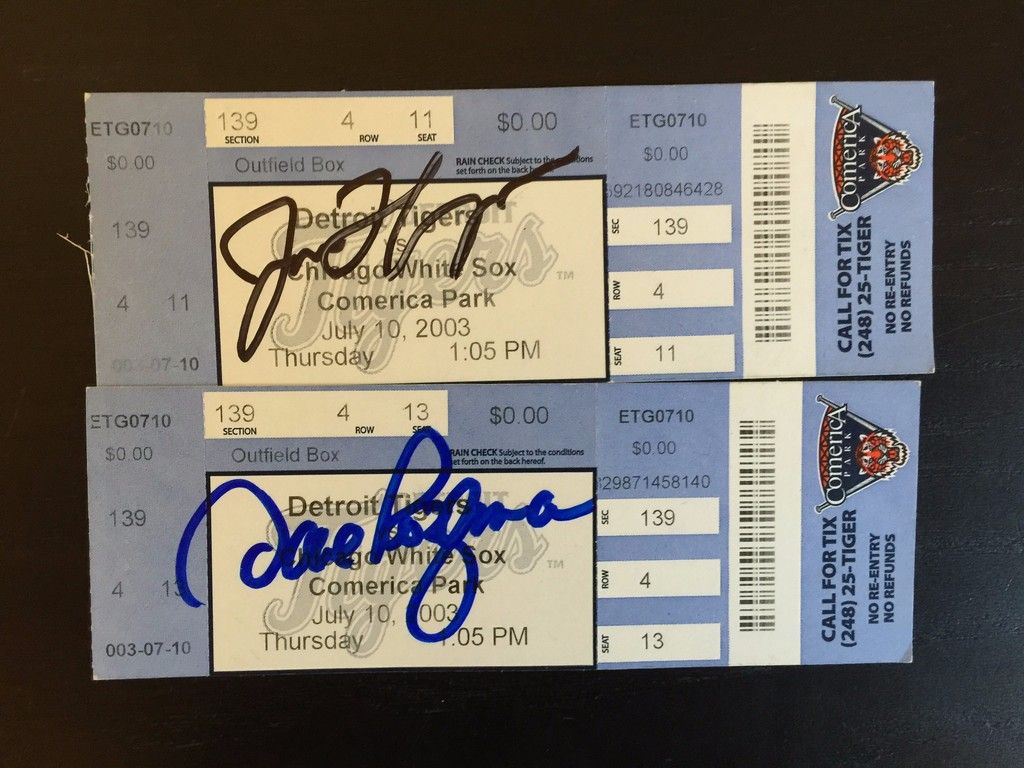 ETG0710
$0.00
139
4 11
003-07-10
139 4 11
SECTION ROW SEAT
$0.00
Outfield Box
RAIN CHECK Subject to the conditions
set forth on the back hereof.
Detroit Tigers
vs
Chicago White Sox
Comerica Park
July 10, 2003
Thursday 1:05 PM
Tigers
TM
ETG0710
$0.00
692180846428
SEC 139
ROW 4
SEAT 11
Comerica
PARK
CALL FOR TIX
(248) 25-TIGER
NO RE-ENTRY
NO REFUNDS
ETG0710
$0.00
139
4 13
003-07-10
139 4 13
SECTION ROW SEAT
$0.00
Outfield Box
RAIN CHECK Subject to the conditions
set forth on the back hereof.
Detroit Tigers
Chicago White Sox
Comerica Park
July 10, 2003
Thursday 1:05 PM
Tigers
TM
ETG0710
$0.00
829871458140
SEC 139
ROW 4
SEAT 13
Comerica
PARK
CALL FOR TIX
(248) 25-TIGER
NO RE-ENTRY
NO REFUNDS